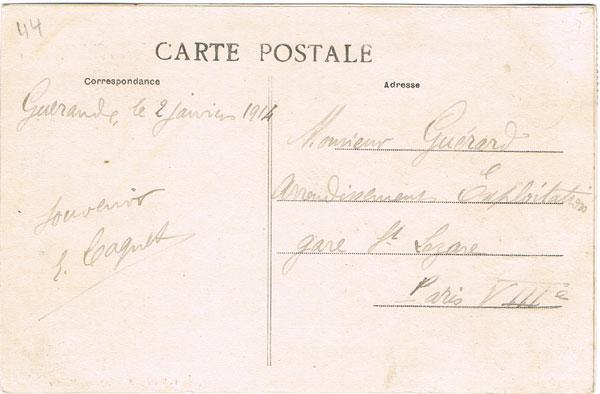 44
CARTE POSTALE
Correspondance
Adresse
Guérande, le 2 janvier 1914
Souvenir
E. Coquet
Monsieur Guérard
Arrondissement Exploitation
gare St Lazare
Paris VIIIe